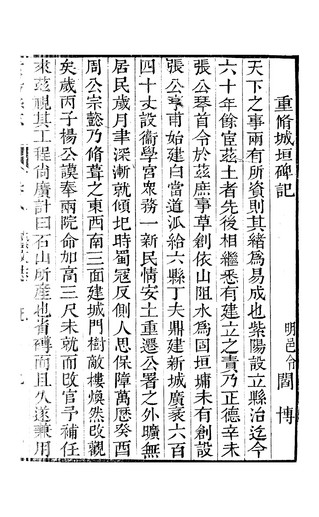 重脩城垣碑記
明邑令閻博
天下之事兩有所資則其緒爲易成也紫陽設立縣治迄今
六十年餘宦茲土者先後相繼悉有建立之責乃正德辛未
張公琴首令於茲庶事草創依山阻水爲固垣墉未有創設
張公亨甫始建白當道派給六縣丁夫鼎建新城廣袤六百
四十丈設衙學宮衆務一新民情安土重遷公署之外曠無
居民歲月聿深漸就傾圯時蜀寇反側人思保障萬歷癸酉
周公宗懿乃脩葺之東西南三面建城門樹敵樓煥然改觀
矣歲丙子楊公謨奉兩院命如高三尺未就而改官予補任
來茲視其工程尚廣計曰石山所產也省磚而且久遂兼用